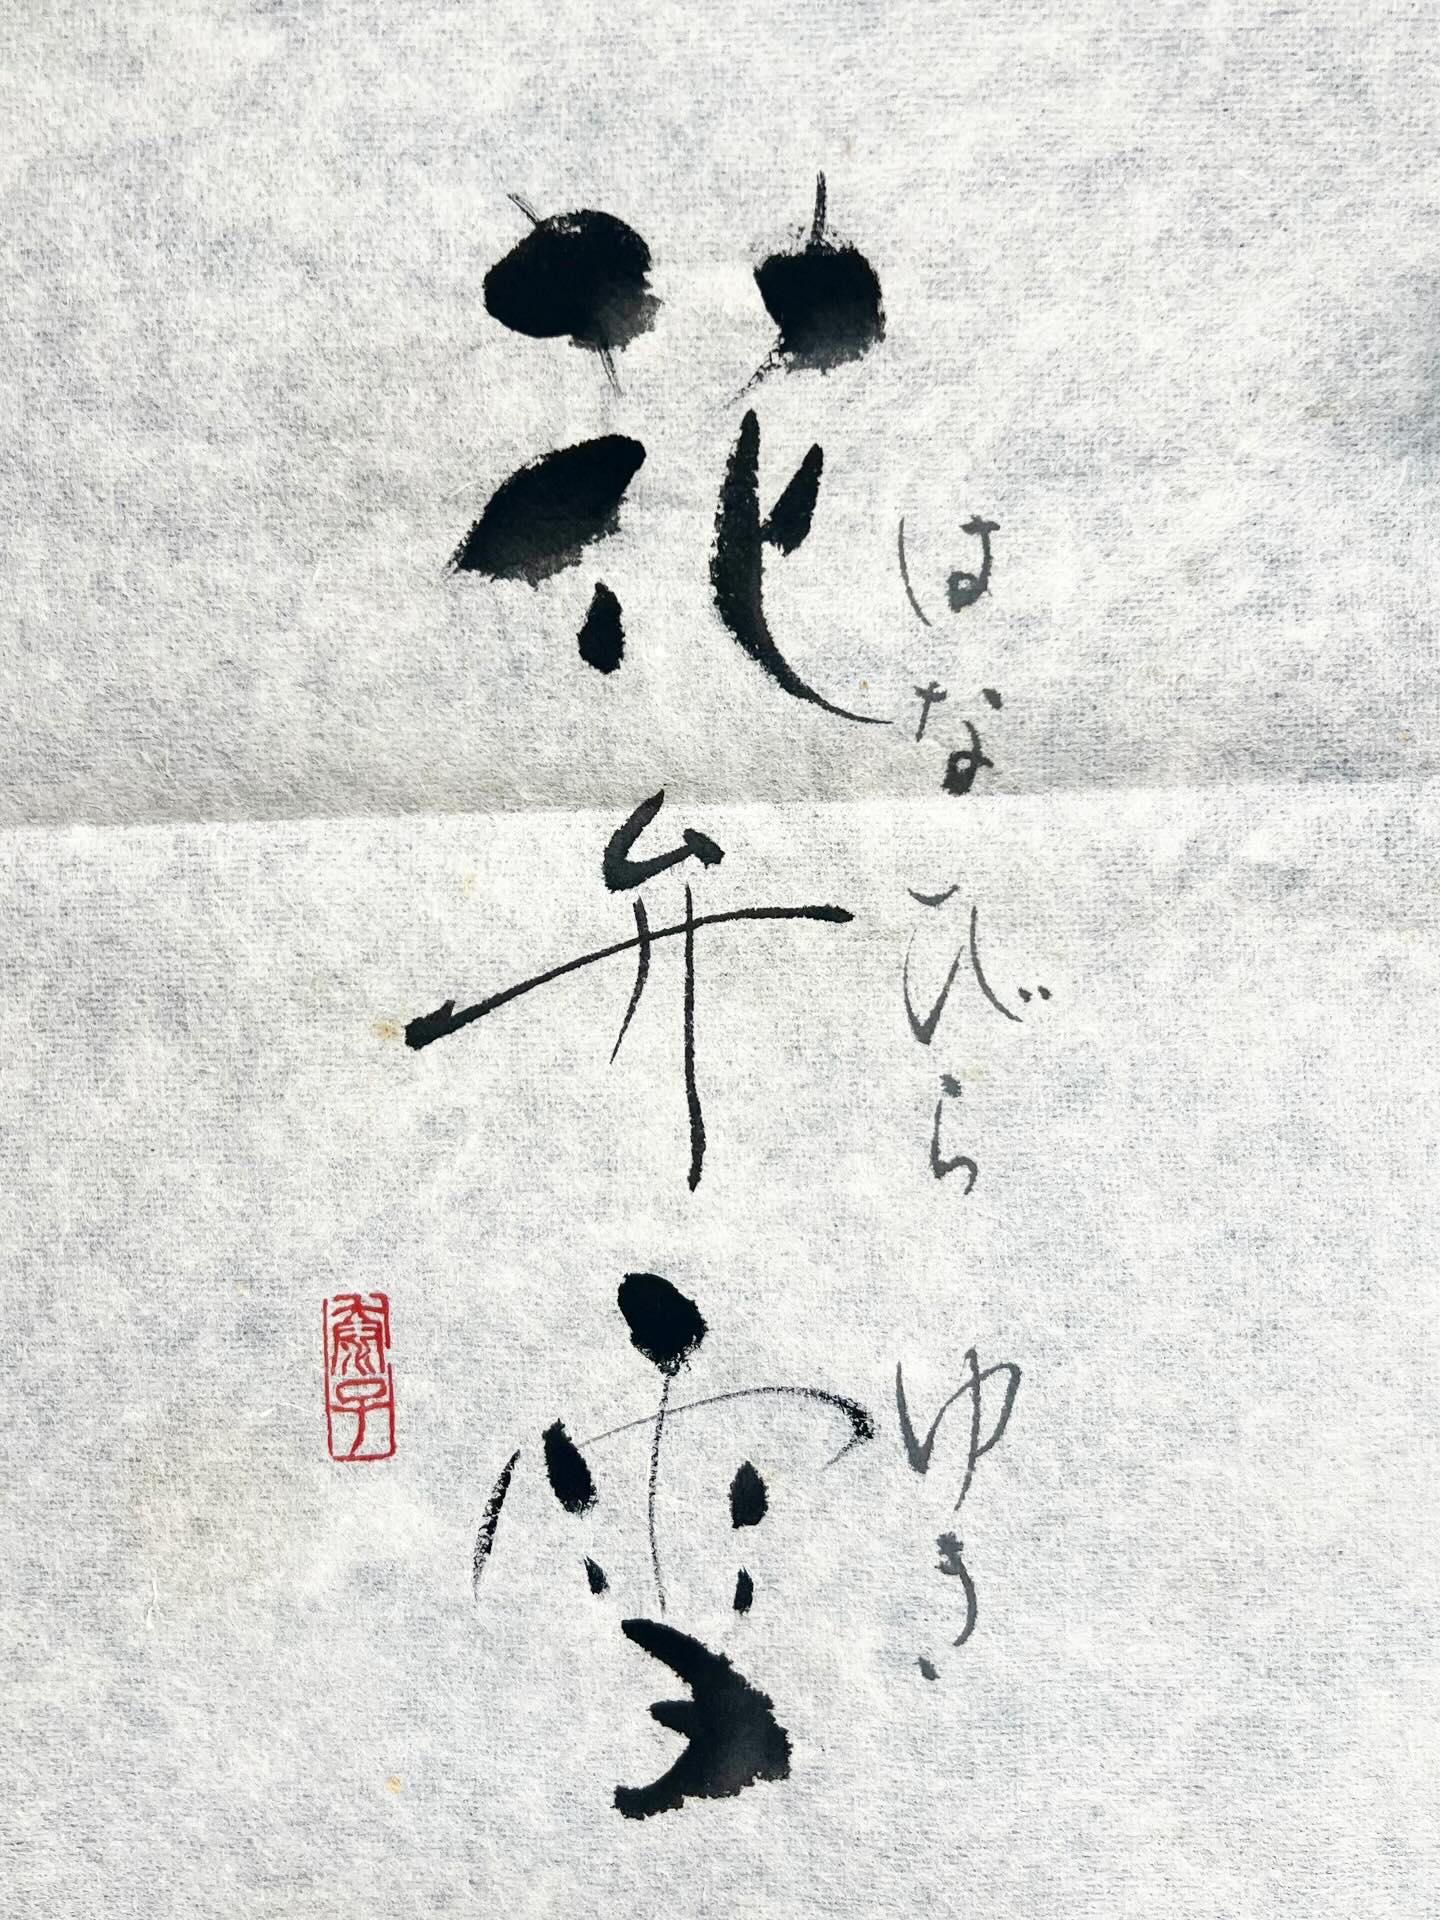 はなびら ゆき
花弁雪